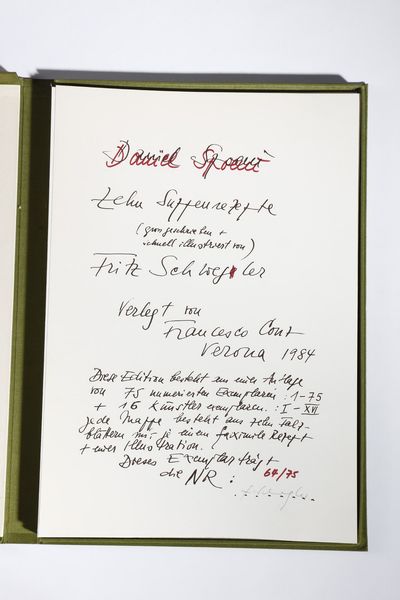 Daniel Spoerri
Zehn Suppenrezepte
(grossgeschrieben +
schnell illustriert von)
Fritz Schwegler
Verlegt von
Francesco Conz
Verona 1984
Diese Edition besteht aus einer Auflage
von 75 numerierten Exemplaren : 1-75
+ 16 Künstlerexemplaren : I - XVI
jede Mappe besteht aus zehn
blättern mit je einem faksimile Rezept
+ einer Illustration.
Dieses Exemplar trägt
die NR : 64/75